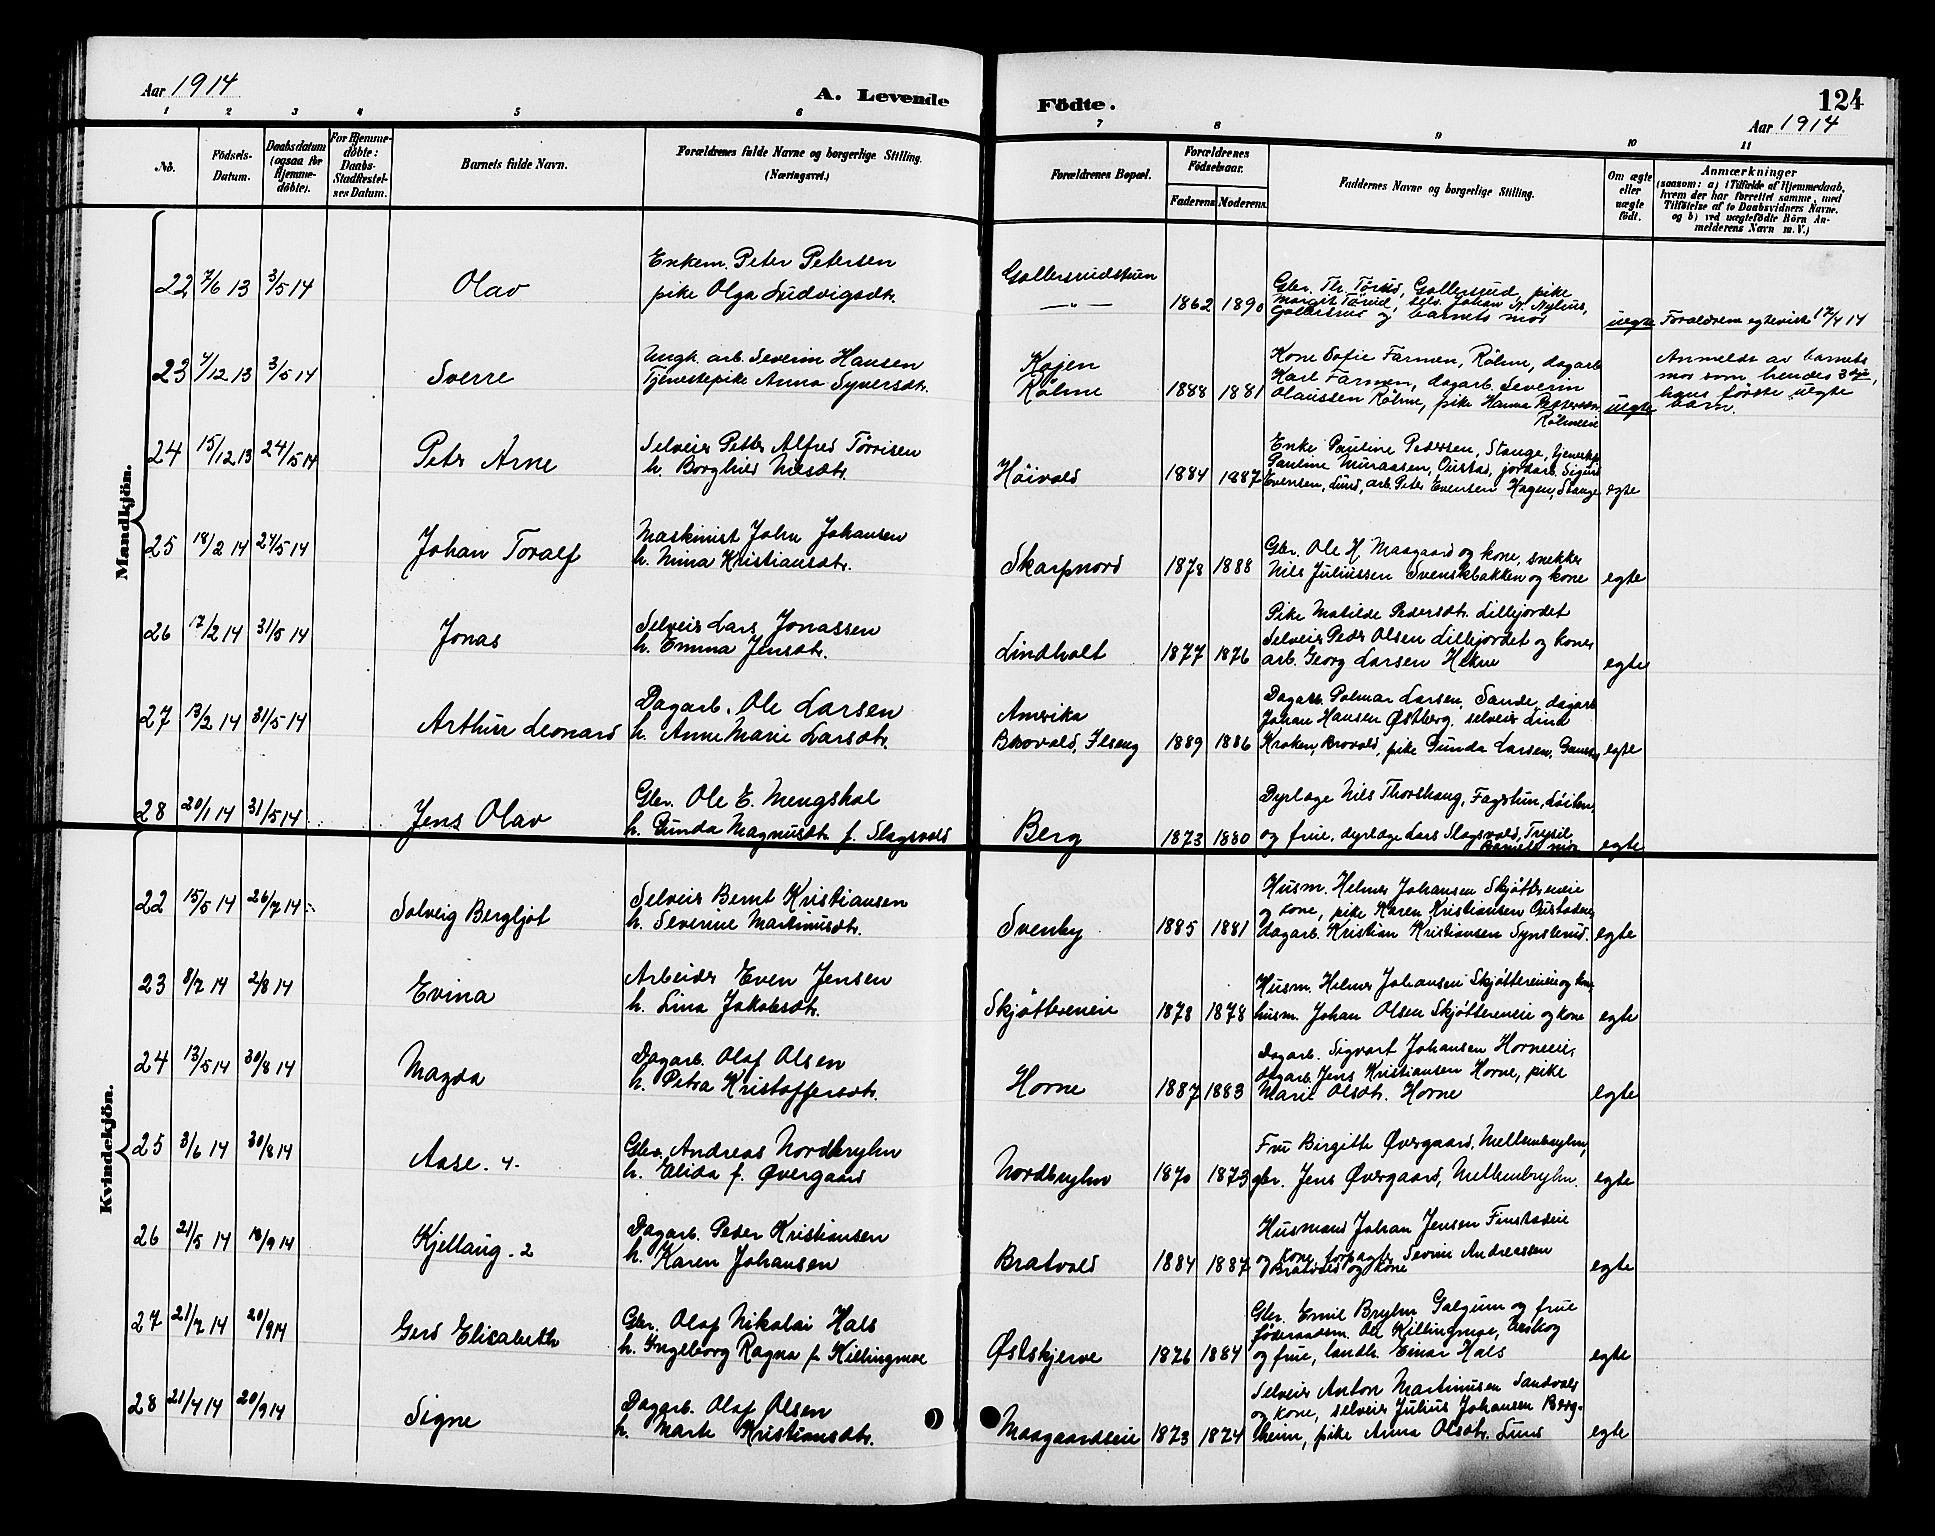 Aar 1914
A. Levende
Födte.
124
Aar 1914
1 2 3 4 5 6 7 8 9 10 11
No.
Födsels-
Datum.
Daabsdatum
(ogsaa för
Hjemme-
döbte).
For Hjemme-
döbte:
Daabs-
Stadfæstel-
ses Datum.
Barnets fulde Navn.
Forældrenes fulde Navne og borgerlige Stilling.
(Næringsvei.)
Forældrenes Bopæl.
Forældrenes
Födselsaar.
Faderens Moderens
Faddernes Navne og borgerlige Stilling.
Om ægte
eller
uægte
födt.
Anmærkninger
(saasom: a) i Tilfælde af Hjemmedaab,
hvem der har forrettet samme, med
Tilföielse af to Daabsvidners Navne,
og b) ved uægtefödte Börn An-
melderens Navn m. V.)
Mandkjön.
22 7/6 13 3/5 14 Olav
Enkem. Peter Petersen
pike Olga Ludvigsdtr.
Gollersrudstuen
— " — 1862 1890
Gbr. Th. Tørud, Gollersrud, pike
Margit Tørud, selv. Johan N. Nylius,
Gollersrud og barnets mor
uegte Foraldrene egteviet 17/4 14
23 4/12 13 3/5 14 Sverre
Ungk. arb. Severin Hansen
Tjenestepike Anna Syversdtr.
Kojen
Røhne 1888 1881
Kone Sofie Farmen, Røhne, dagarb.
Karl Farmen, dagarb. Severin
Olaussen Røhne, pike Hanna Pettersen
Røhneeie
uegte
Anmeldt av barnets
mor som hendes 3dje,
hans første uegte
barn.
24 15/12 13 24/5 14 Peter Arne
Selveier Petter Alfred Torvisen
h. Borghild Nilsdtr.
Høivold 1884 1887
Enke Pauline Pedersen, Stange, tjenestep.
Pauline Muraasen, Oustad, jordarb. Sigurd
Evensen, Lund, arb. Peter Evensen Hagen, Stange
egte
25 18/2 14 24/5 14 Johan Toralf
Maskinist John Johansen
h. Nina Kristiansdtr.
Skarpnord 1878 1888
Gbr. Ole H. Maagaard og kone, snekker
Nils Juliussen Svenskbakken og kone
egte
26 17/2 14 31/5 14 Jonas
Selveier Lars Jonassen
h. Emma Jensdtr.
Lindholt 1877 1876
Pike Matilde Pedersdtr. Lillejordet
Selveier Peder Olsen Lillejordet og kone,
arb. Georg Larsen Hekne
egte
27 13/2 14 31/5 14 Arthur Leonard
Dagarb. Ole Larsen
h. Anne Marie Larsdtr.
Amerika
Brovold, Ilseng 1889 1886
Dagarb. Palmar Larsen, Sande, dagarb.
Johan Hansen Østberg, selveier Lind
Kroken, Brovold, pike Gunda Larsen,
egte
28 20/1 14 31/5 14 Jens Olav
Gbr. Ole E. Mengshol
h. Gunda Magnusdtr. f. Slagsvold
Berg 1873 1880
Dyrlæge Nils Thorshaug, Fagstun, Løiten,
og frue, dyrlæge Lars Slagsvold, Trysil
Barnets mor
egte
Kvindekjön.
22 15/5 14 26/7 14 Solveig Bergljot
Selveier Bernt Kristiansen
h. Severine Martinusdtr.
Svenby 1885 1881
Husm. Helmer Johansen Skjøttereneie
og kone, pike Karen Kristiansen Oustadeie,
dagarb. Kristian Kristiansen Synslund.
egte
23 8/7 14 2/8 14 Evina
Arbeider Even Jensen
h. Lina Jakobsdtr.
Skjøttereneie 1878 1878
Husm. Helmer Johansen Skjøttereneie og kone,
husm. Johan Olsen Skjøttereneie og kone
egte
24 13/5 14 30/8 14 Magda
Dagarb. Olaf Olsen
h. Petra Kristoffersdtr.
Horne 1887 1883
Dagarb. Sigvart Johansen Horneeie,
dagarb. Jens Kristiansen Horne, pike
Marie Olsdtr. Horne
egte
25 3/6 14 30/8 14 Aase. 4.
Gbr. Andreas Nordbryhn
h. Elida f. Øvergaard
Nordbryhn 1870 1873
Fru Birgitte Øvergaard, Mellembryhn,
gbr. Jens Øvergaard, Mellembryhn.
egte
26 21/5 14 18/9 14 Kjellaug. 2
Dagarb. Peder Kristiansen
h. Karen Johansen
Bratvold 1884 1887
Husmand Johan Jensen Finstadeie
og kone, forpagter Severin Andreassen
Bratvold og kone
egte
27 21/7 14 20/9 14 Gerd Elisabeth
Gbr. Olaf Nikolai Hals
h. Ingeborg Ragna f. Killingmoe
Østskjerve 1876 1884
Gbr. Emil Bryhn Galgum og frue
føderaadsm. Ole Killingmoe, Urskog
og frue, landh. Einar Hals
egte
28 21/4 14 20/9 14 Signe
Dagarb. Olaf Olsen
h. Marte Kristiansdtr.
Maagaardseie 1873 1874
Selveier Anton Martinusen Sandvold
og kone, selveier Julius Johansen Berg-
heim, pike Anna Olsdtr. Lund
egte